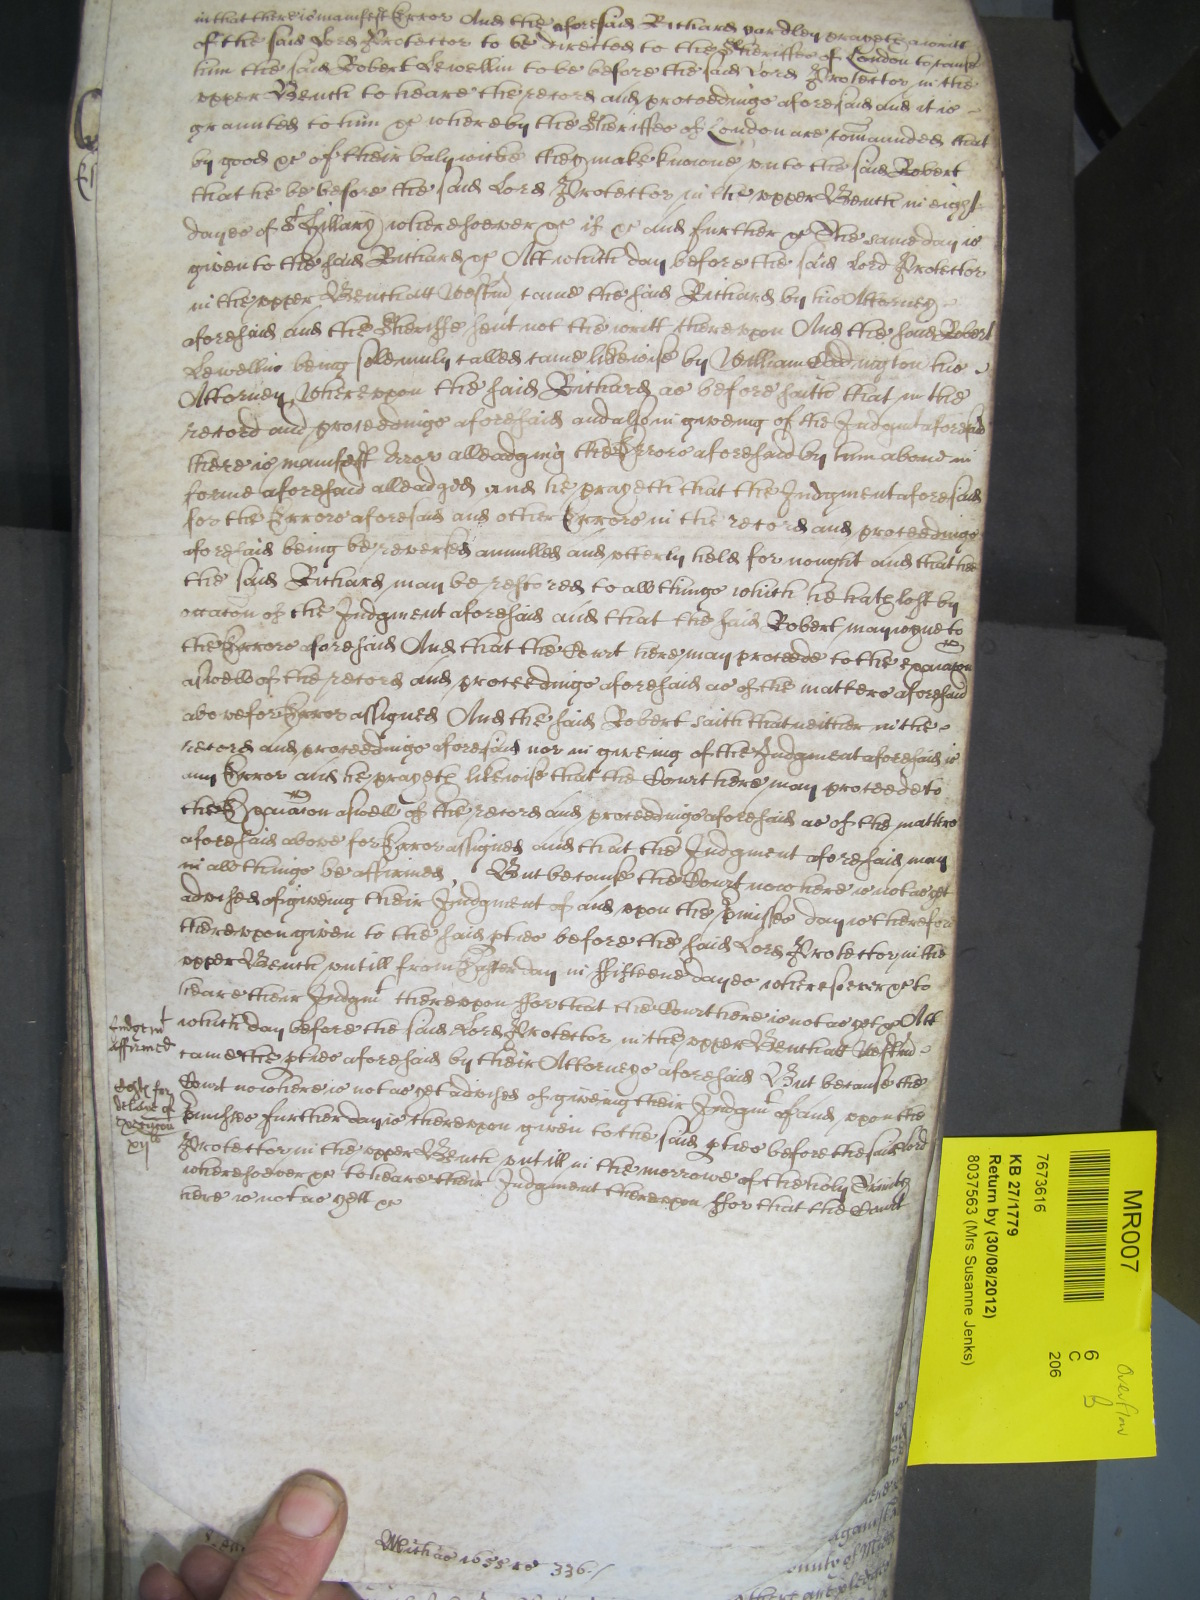 in that there is manifest Error And the aforesaid Richard yardley prayeth a writt
of the said Lord Protector to be directed to the Sheriffes of London to cause
him the said Robert Lewellin to be before the said Lord Protector in the
upper Bench to heare the record and proceedings aforesaid and it is
graunted to him &c whereby the Sheriffes of London are comaunded that
by good &c of their balywicke they make knowne unto the said Robert
that he be before the said Lord Protector in the upper Bench in eight
dayes of St Hillary wheresoever &c if &c and further &c The same day is
given to the said Richard &c Att which day before the said Lord Protector
in the upper Bench att Westmr came the said Richard by his Attorney
aforesaid and the Sheriffe sent not the writt thereupon And the said Robert
Lewellin being solemnly called came likewise by William Eddington his
Attorney Whereupon the said Richard as before saith that in the
record and proceedings aforesaid and also in giveing of the Judgmt aforesaid
there is manifest Error alleadging the Errors aforesaid by him above in
forme aforesaid alleadged and he prayeth that the Judgment aforesaid
for the Errors aforesaid and other Errors in the record and proceedings
aforesaid being be reversed annulled and utterly held for nought and that he
the said Richard may be restored to all things which he hath lost by
occasion of the Judgment aforesaid and that the said Robert may ioyne to
the Errors aforesaid And that the Court here may proceede to the exaiacon
aswell of the record and proceedings aforesaid as of the matters aforesaid
above for Error assigned And the said Robert saith that neither in the
record and proceedings aforesaid nor in giveing of the Judgment aforesaid is
any Error and he prayeth likewise that the Court here may proceede to
the Exaiacon aswell of the record and proceedings aforesaid as of the matters
aforesaid above for Error assigned and that the Judgment aforesaid may
in all things be affirmed But because the Court now here is not as yet
advised of giveing their Judgment of and upon the pmisses day is therefore
thereupon given to the said pties before the said Lord Protector in the
upper Bench untill from Easter day in fifteene dayes wheresoever &c to
heare their Judgmt thereupon ffor that the Court here is not as yet &c Att
which day before the said Lord Protector in the upper Bench att Westmr
came the pties aforesaid by their Attorneys aforesaid But because the
Court now here is not as yet advised of giveing their Judgmt of and upon the
pmisses further day is thereupon given to the said pties before the said Lord
Protector in the upper Bench untill in the morrowe of the holy Trinity
wheresoever &c to heare their Judgment thereupon ffor that the Court
here is not as yett &c
Judgemt
affirmed
Costs for
delaye of
Execucon
xijli
Michas 1655 ro 336
MR007
7673616
KB 27/1779
Return by (30/08/2012)
8037563 (Mrs Susanne Jenks)
6
C
206
Overflow
B